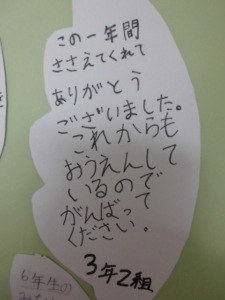 この一年間
ささえてくれて
ありがとう
ございました。
これからも
おうえんして
いるので
がんばって
ください。
3年2組
6年生の